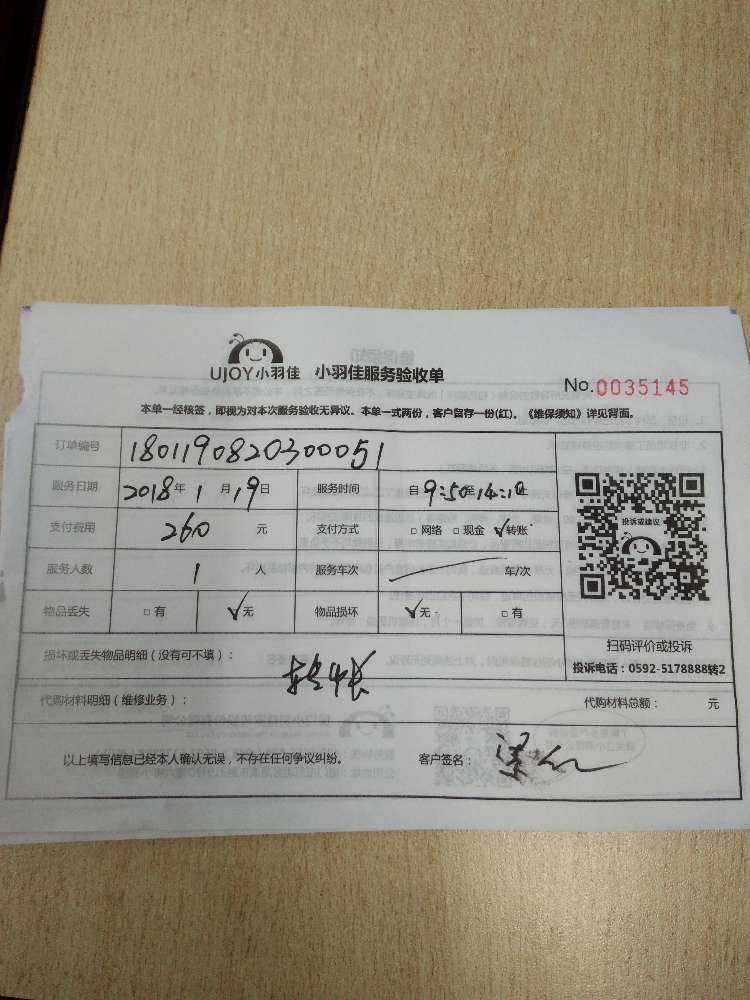 UJOY小羽佳 小羽佳服务验收单
No.0035145
本单一经核签，即视为对本次服务验收无异议。本单一式两份，客户留存一份(红)。《维保须知》详见背面。
订单编号 1801190820300051
服务日期 2018年1月19日 服务时间 自9:50至14:10止
支付费用 260元 支付方式 □网络 □现金 ☑转账
服务人数 1人 服务车次 车/次
物品丢失 □有 ☑无 物品损坏 ☑无 □有
投诉或建议
扫码评价或投诉
投诉电话：0592-5178888转2
损坏或丢失物品明细（没有可不填）：
转账
代购材料明细（维修业务）： 代购材料总额： 元
以上填写信息已经本人确认无误，不存在任何争议纠纷。 客户签名：